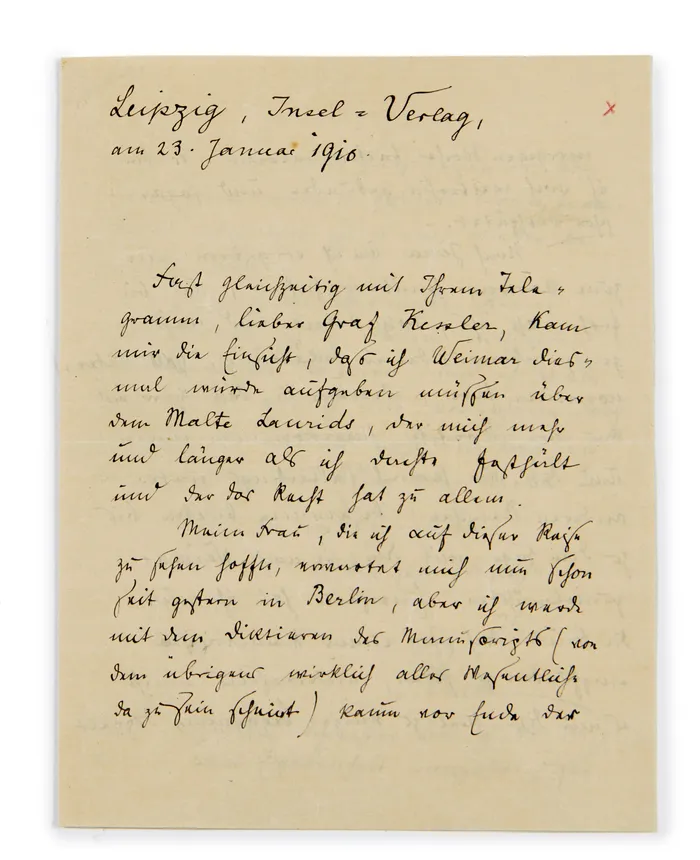 Leipzig, Insel=Verlag,
am 23. Januar 1910.
Fast gleichzeitig mit Ihrem Tele=
gramm, lieber Graf Kessler, kam
mir die Einsicht, daß ich Weimar dies=
mal würde aufgeben müssen über
dem Malte Laurids, der mich mehr
und länger als ich dachte festhält
und der das Recht hat zu allem.
Meine Frau, die ich auf dieser Reise
zu sehen hoffte, erwartet mich nun schon
seit gestern in Berlin, aber ich werde
mit dem Diktieren des Manuscripts (von
dem übrigens wirklich alles Wesentliche
da zu sein scheint) kaum vor Ende der